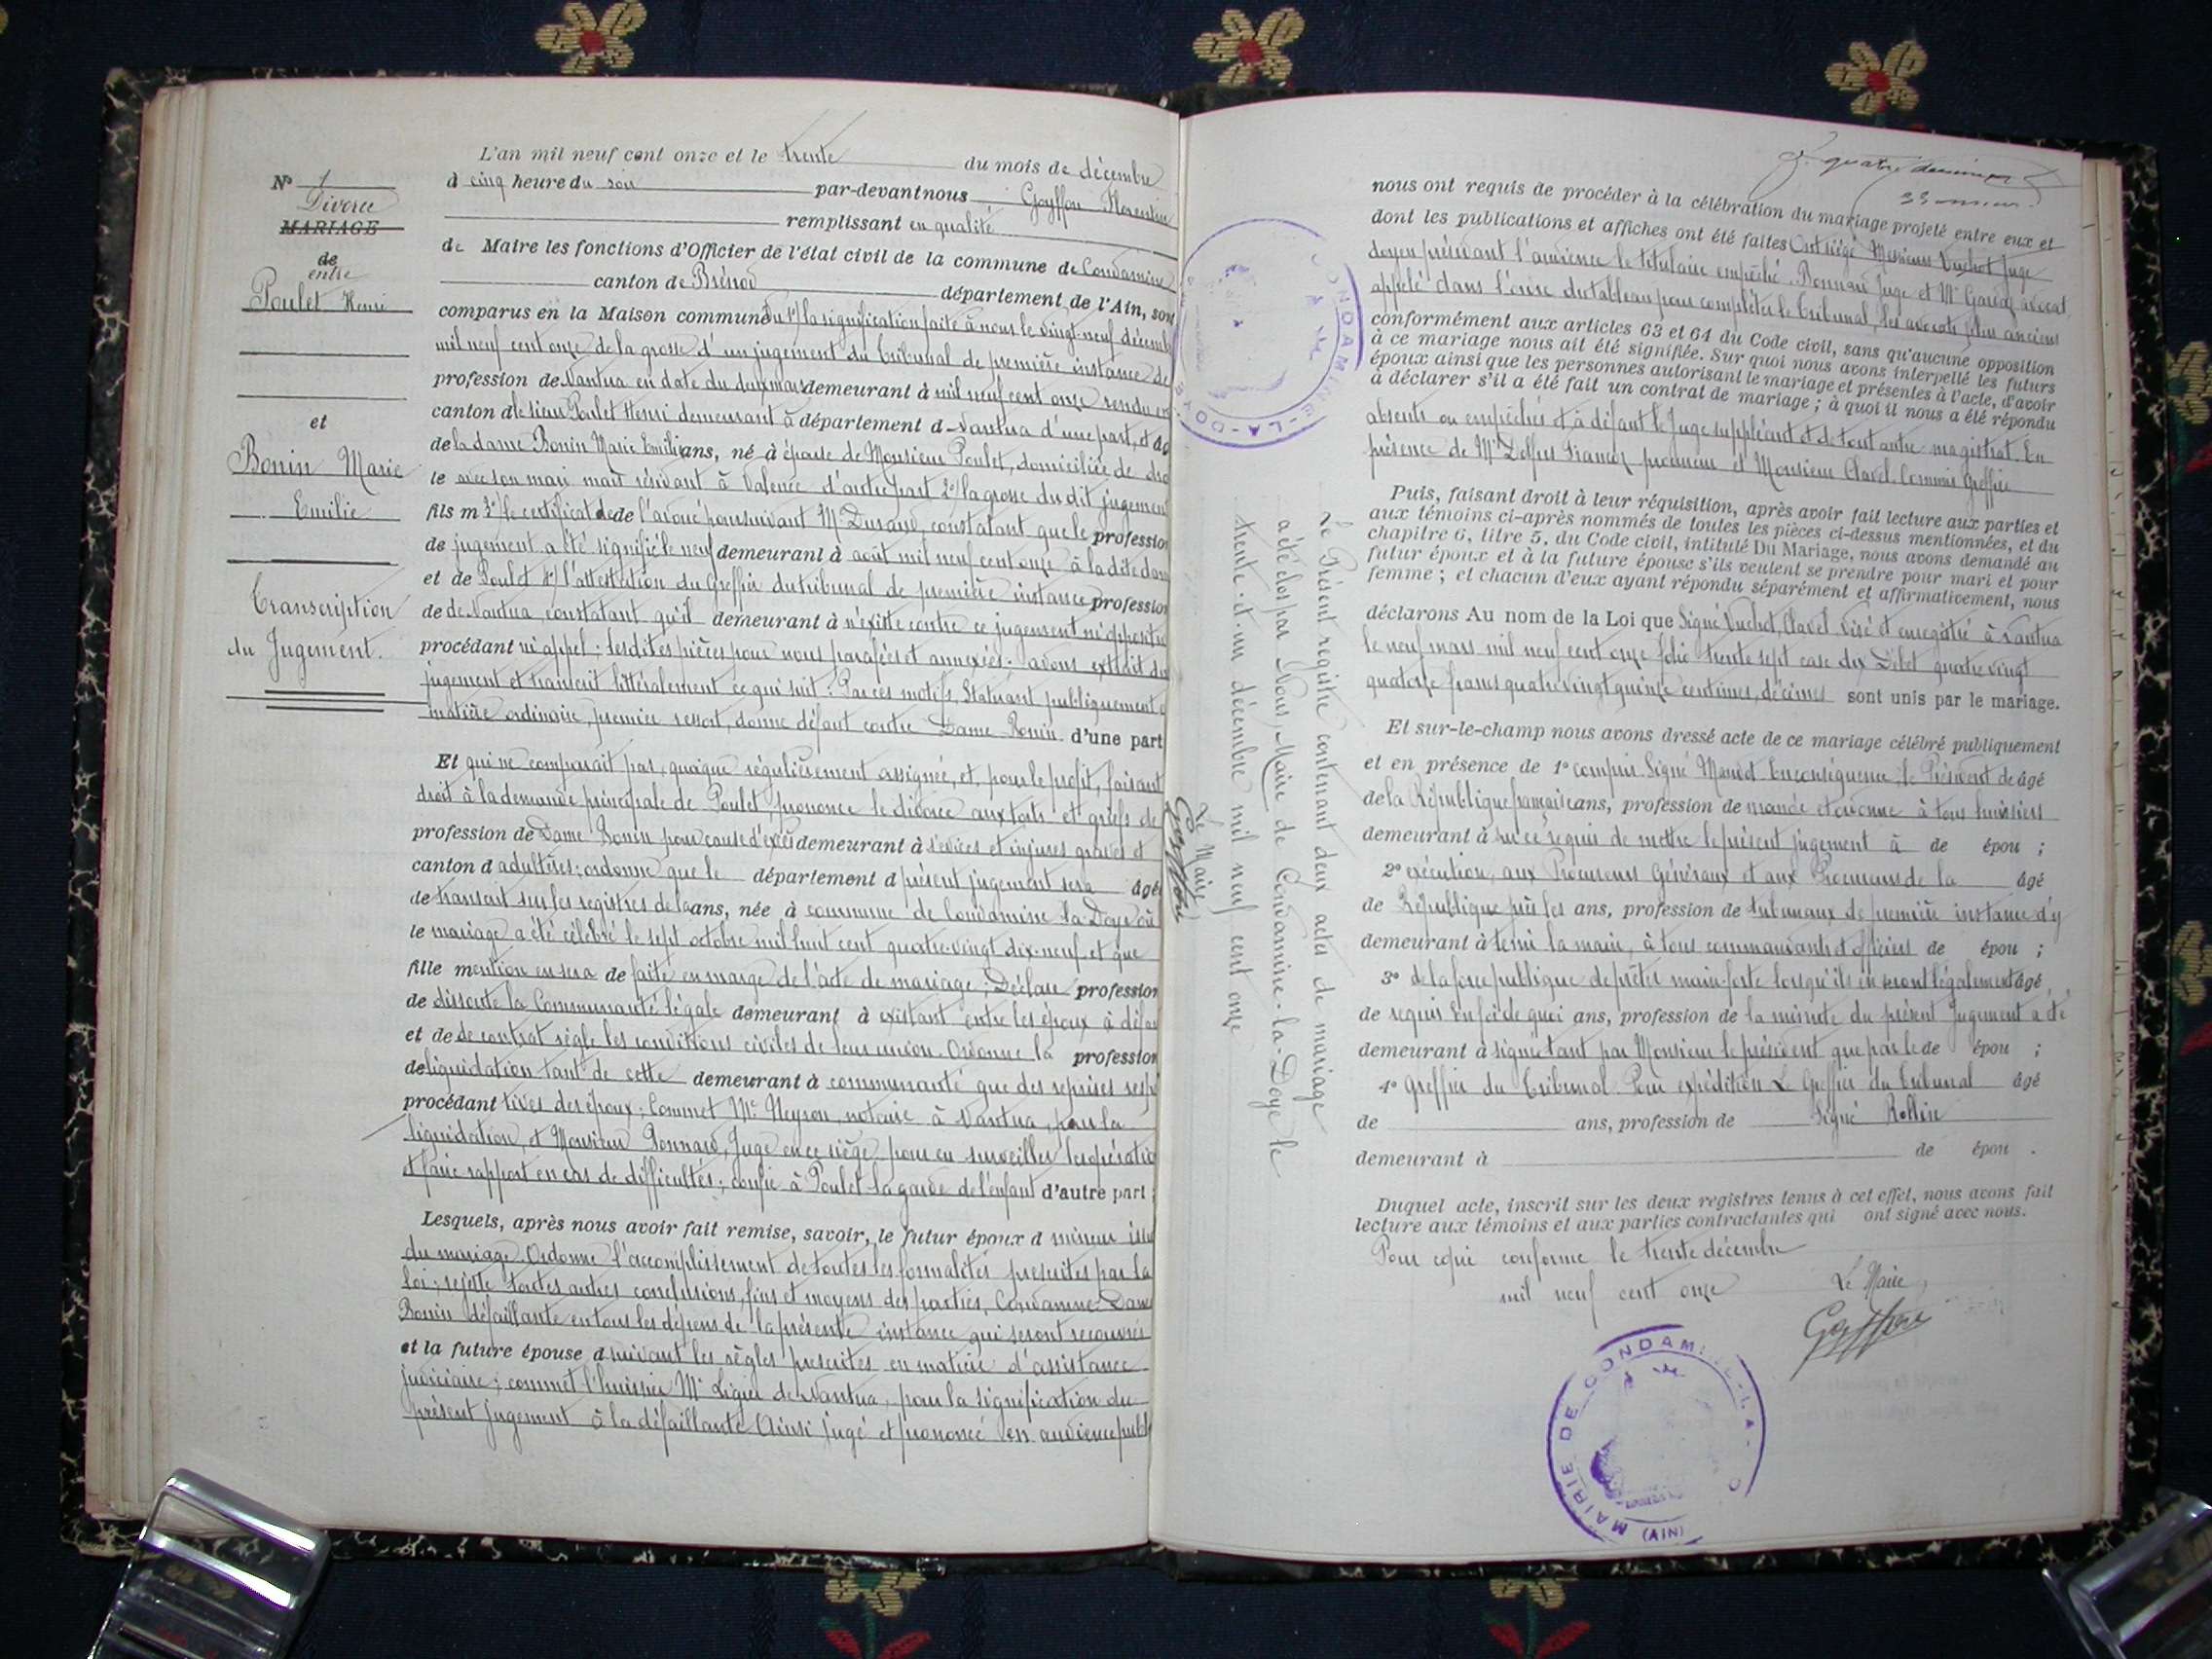 L'an mil neuf cent onze et le trente du mois de décembre
à cinq heure du soir par-devant nous, Goyffon Florentin
remplissant en qualité
de Maire les fonctions d'Officier de l'état civil de la commune de Condamine
canton de Brénod département de l'Ain, son
N° 1
Divorce
MARIAGE
de
entre
Poulet Henri
et
Bonin Marie
Emilie
Transcription
du Jugement.
comparus en la Maison commune Vu 1°/ la signification faite à nous le vingt-neuf décemb
mil neuf cent onze de la grosse d'un jugement du tribunal de première instance de
profession de Nantua en date du deux mars demeurant à mil neuf cent onze rendu en
canton d le sieur Poulet Henri demeurant à département d Nantua d'une part, et de
de la dame Bonin Marie Emilie ans, né à épouse de Monsieur Poulet, domiciliée de dro
le avec son mari mais résidant à Valence d'autre part 2°/ la grosse du dit jugemen
fils m 3°/ le certificat de de l'avoué poursuivant Me Durand, constatant que le profession
de jugement a été signifié le neuf demeurant à août mil neuf cent onze à la dite dam
et de Poulet 4°/ l'attestation du Greffier du tribunal de première instance profession
de de Nantua, constatant qu'il demeurant à n'existe contre ce jugement ni oppositio
procédant ni appel ; lesdites pièces pour nous parafées et annexées ; avons extrait du
jugement et transcrit littéralement ce qui suit : Par ces motifs, Statuant publiquement e
matière ordinaire, premier ressort, donne défaut contre Dame Bonin d'une part
Et qui ne comparait pas, quoique régulièrement assignée, et, pour le profit, faisant
droit à la demande principale de Poulet, prononce le divorce aux torts et griefs de
profession de Dame Bonin pour cause d'excès demeurant à sévices et injures graves et
canton d adultères ; ordonne que le département d présent jugement sera âgé
de transcrit sur les registres de la ans, née à commune de Condamine la Doye où
le mariage a été célébré le sept octobre mil huit cent quatre-vingt dix-neuf et que
fille mention en sera de faite en marge de l'acte de mariage ; Déclare profession
de dissoute la Communauté légale demeurant à existant entre les époux à défau
et de de contrat règle les conditions civiles de leur union. Ordonne la profession
de liquidation tant de cette demeurant à communauté que des reprises respé
procédant tives des époux ; Commet Me Neyron, notaire à Nantua, pour la
liquidation, et Monsieur Bonnard, Juge en ce siège pour en surveiller les opératio
et faire rapport en cas de difficultés ; confie à Poulet la garde de l'enfant d'autre part ;
Lesquels, après nous avoir fait remise, savoir, le futur époux d mineur issu
du mariage. Ordonne l'accomplissement de toutes les formalités prescrites par la
loi ; rejette toutes autres conclusions, fins et moyens des parties, Condamne Dame
Bonin défaillante en tous les dépens de la présente instance qui seront recouvrés
et la future épouse d suivant les règles prescrites en matière d'assistance
judiciaire ; commet l'huissier Me Ligier de Nantua, pour la signification du
présent Jugement à la défaillante Ainsi jugé et prononcé en audience publi
Le Présent registre contenant deux actes de mariage
a été clos par Nous, Maire de Condamine-la-Doye le
trente-et-un décembre mil neuf cent onze
Le Maire
Goyffon
CONDAMINE-LA-DOYE
nous ont requis de procéder à la célébration du mariage projeté entre eux et
dont les publications et affiches ont été faites Ont siégé Messieurs Vuchot Juge
doyen présidant l'audience le titulaire empêché, Bonnard Juge et Me Gauda avocat,
appelé dans l'ordre du tableau pour compléter le tribunal, les avocats plus anciens
conformément aux articles 63 et 64 du Code civil, sans qu'aucune opposition
à ce mariage nous ait été signifiée. Sur quoi nous avons interpellé les futurs
époux ainsi que les personnes autorisant le mariage et présentes à l'acte, d'avoir
à déclarer s'il a été fait un contrat de mariage ; à quoi il nous a été répondu
absents ou empêchés et à défaut le Juge suppléant et de tout autre magistrat. En
présence de Mr procureur et Monsieur Clavel Commis Greffier
Puis, faisant droit à leur réquisition, après avoir fait lecture aux parties et
aux témoins ci-après nommés de toutes les pièces ci-dessus mentionnées, et du
chapitre 6, titre 5, du Code civil, intitulé Du Mariage, nous avons demandé au
futur époux et à la future épouse s'ils veulent se prendre pour mari et pour
femme ; et chacun d'eux ayant répondu séparément et affirmativement, nous
déclarons Au nom de la Loi que Signé Vuchot, Clavel Visé et enregistré à Nantua
le neuf mars mil neuf cent onze folio trente sept case dix Débet quatre vingt
quatorze francs quatre vingt quinze centimes, décimes sont unis par le mariage.
Et sur-le-champ nous avons dressé acte de ce mariage célébré publiquement
et en présence de 1° compris. Signé En conséquence, le Président de âgé
de la République française ans, profession de mande et ordonne à tous huissiers
demeurant à sur ce requis de mettre le présent jugement à de épou ;
2° exécution, aux Procureurs Généraux et aux Procureurs de la âgé
de République près les ans, profession de tribunaux de première instance d'y
demeurant à tenir la main, à tous commandants et officiers de épou ;
3° de la force publique de prêter main-forte lorsqu'ils en seront légalement âgé
de requis En foi de quoi ans, profession de la minute du présent Jugement a été
demeurant à signé tant par Monsieur le président que par le de épou ;
4° Greffier du Tribunal. Pour expédition Le Greffier du tribunal âgé
de ans, profession de Signé Rollin
demeurant à de épou .
Duquel acte, inscrit sur les deux registres tenus à cet effet, nous avons fait
lecture aux témoins et aux parties contractantes qui ont signé avec nous.
Pour copie conforme le trente décembre
mil neuf cent onze Le Maire
Goyffon
MAIRIE DE CONDAMINE-LA-D
(AIN)